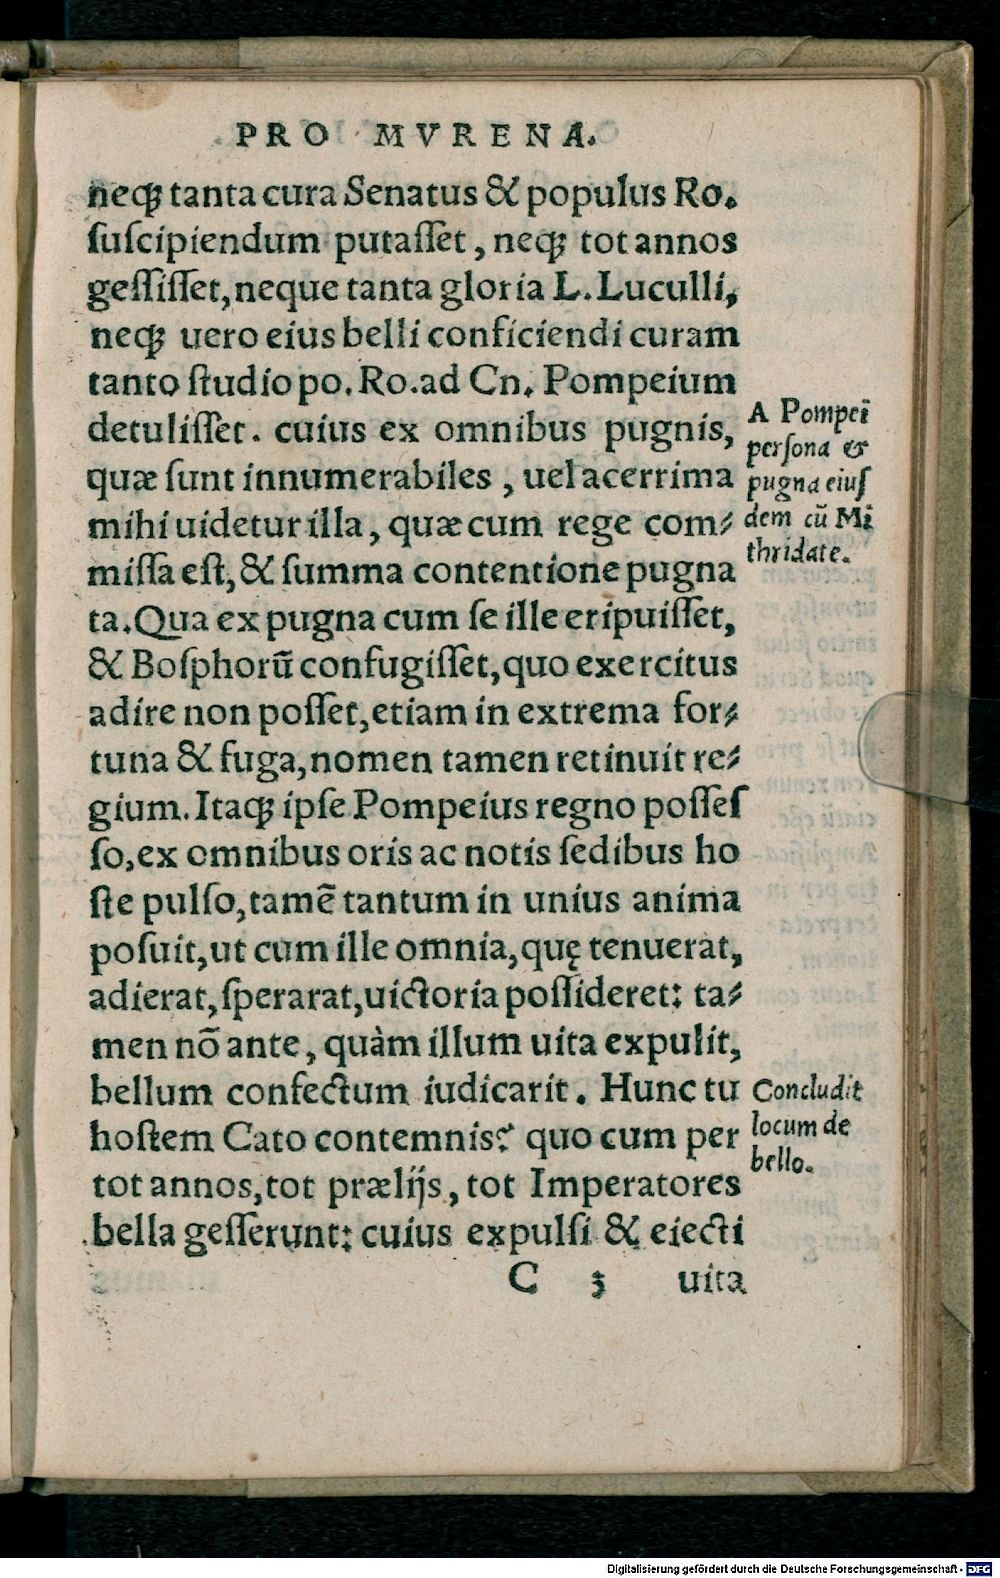 PRO MVRENA.
neqꝫ tanta cura Senatus & populus Ro.
ſuſcipiendum putaſſet, neqꝫ tot annos
geſſiſſet, neque tanta gloria L. Luculli,
neqꝫ uero eius belli conficiendi curam
tanto ſtudio po. Ro. ad Cn. Pompeium
detuliſſet. cuius ex omnibus pugnis,
quæ ſunt innumerabiles, uel acerrima
mihi uidetur illa, quæ cum rege com⸗
miſſa eſt, & ſumma contentione pugna
ta. Qua ex pugna cum ſe ille eripuiſſet,
& Boſphorū confugiſſet, quo exercitus
adire non poſſet, etiam in extrema for⸗
tuna & fuga, nomen tamen retinuit re⸗
gium. Itaqꝫ ipſe Pompeius regno poſſeſ
ſo, ex omnibus oris ac notis ſedibus ho
ſte pulſo, tamē tantum in unius anima
poſuit, ut cum ille omnia, quę tenuerat,
adierat, ſperarat, uictoria poſſideret: ta⸗
men nō ante, quàm illum uita expulit,
bellum confectum iudicarit. Hunc tu
hoſtem Cato contemnis? quo cum per
tot annos, tot prælijs, tot Imperatores
bella geſſerunt: cuius expulſi & eiecti
C 3 uita
A Pompei
perſona &
pugna eiuſ
dem cū Mi
thridate.
Concludit
locum de
bello.
Digitalisierung gefördert durch die Deutsche Forschungsgemeinschaft - DFG